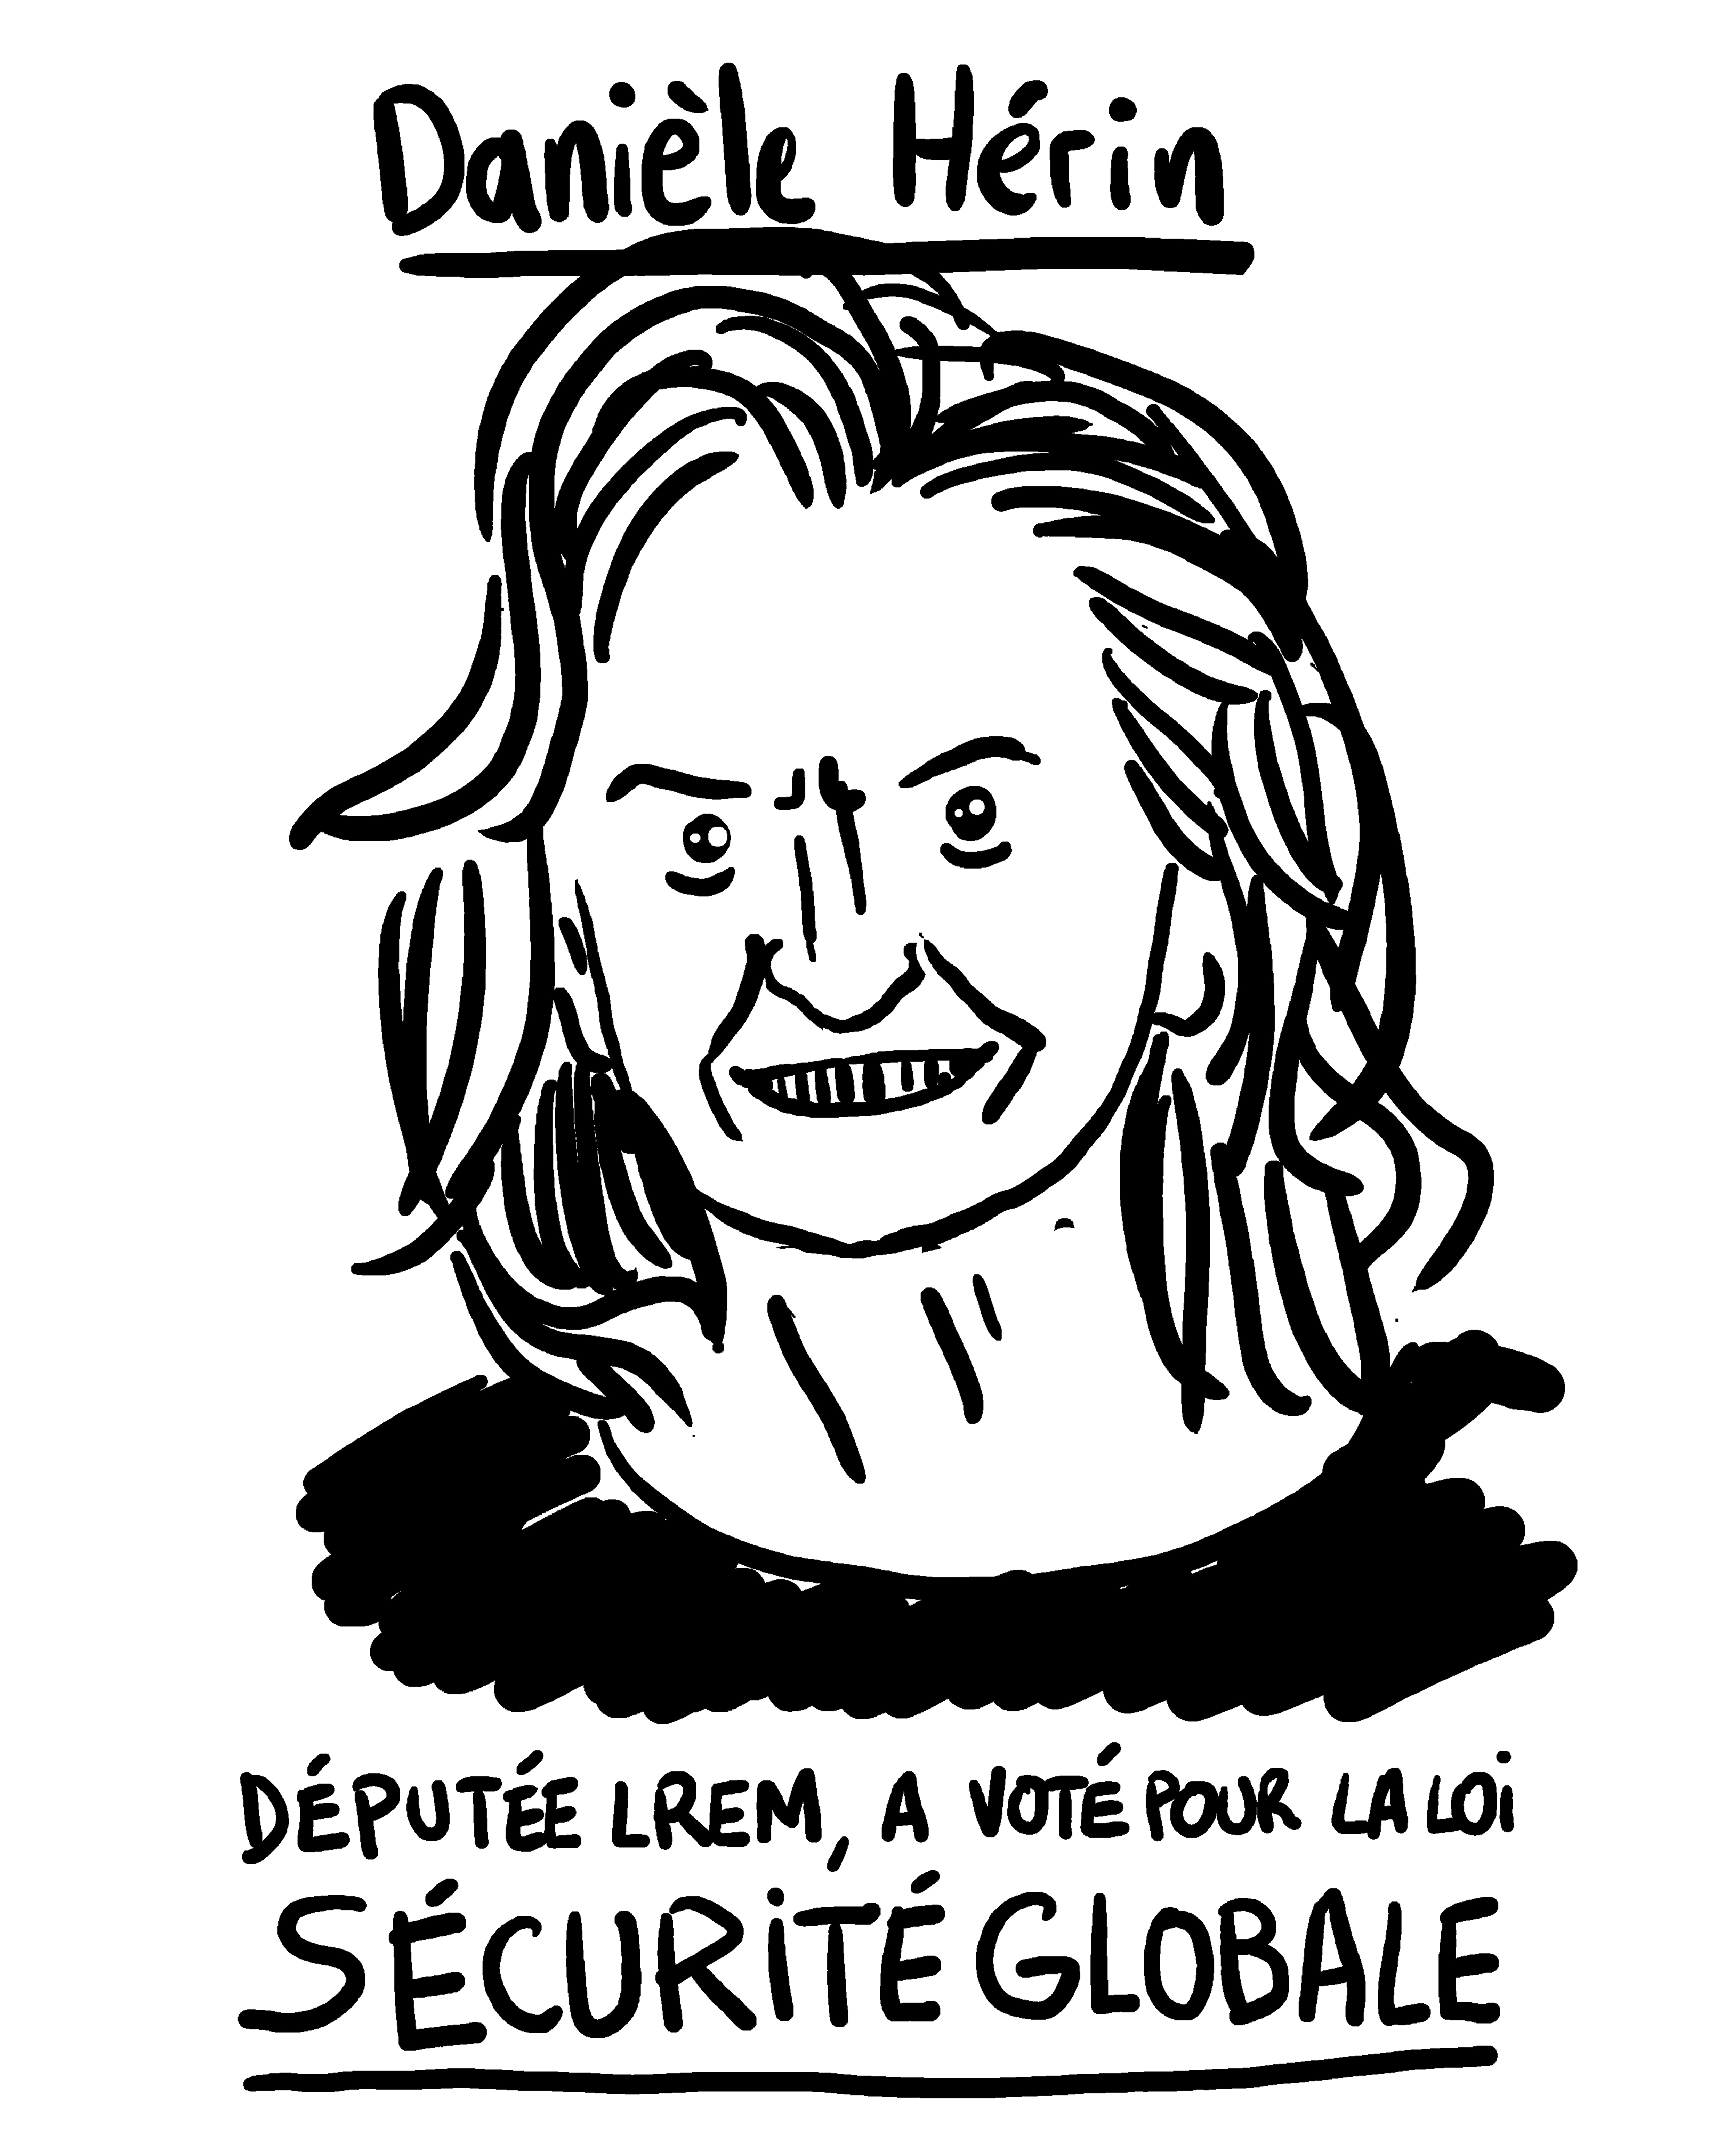 Danièle Hérin
DÉPUTÉE LREM, A VOTÉ POUR LA LOI
SÉCURITÉ GLOBALE